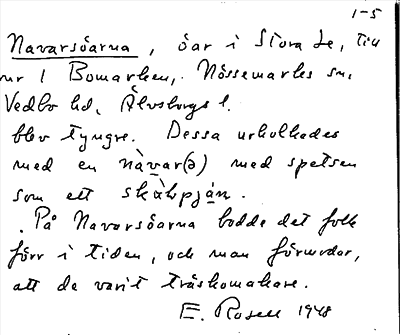 1-5
Navarsöarna, öar i Stora Le, till
nr 1 Bomarken, Nössemarks sn,
Vedbo hd, Älvsborgs l.
blev tyngre. Dessa urholkades
med en nàvar(ə) med spetsen
som ett skàlpjạ́n.
På Navarsöarna bodde det folk
förr i tiden, och man förmodar,
att de varit träskomakare.
E. Rosell 1948